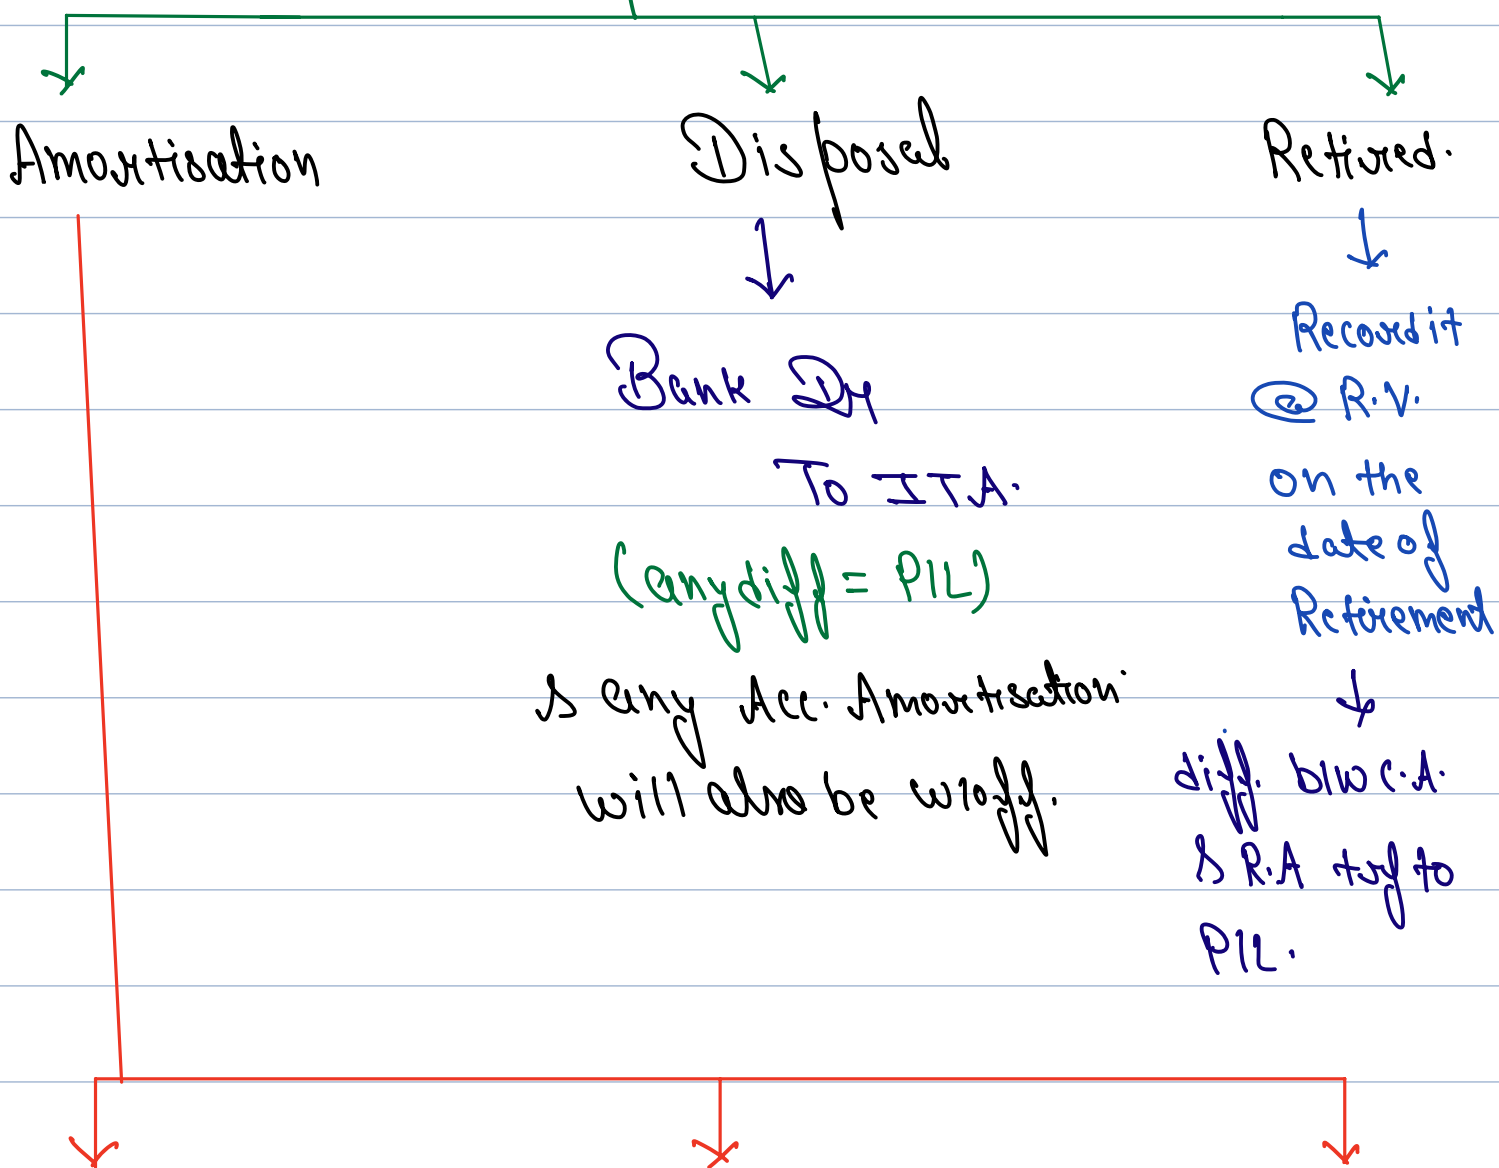 Amortisation
Disposal
Retired.
Bank Dr
To ITA.
(any diff = P/L)
& any Acc. Amortisation
will also be w/off.
Record it
@ R.V.
on the
date of
Retirement
diff. b/w C.A.
& R.A trf to
P/L.